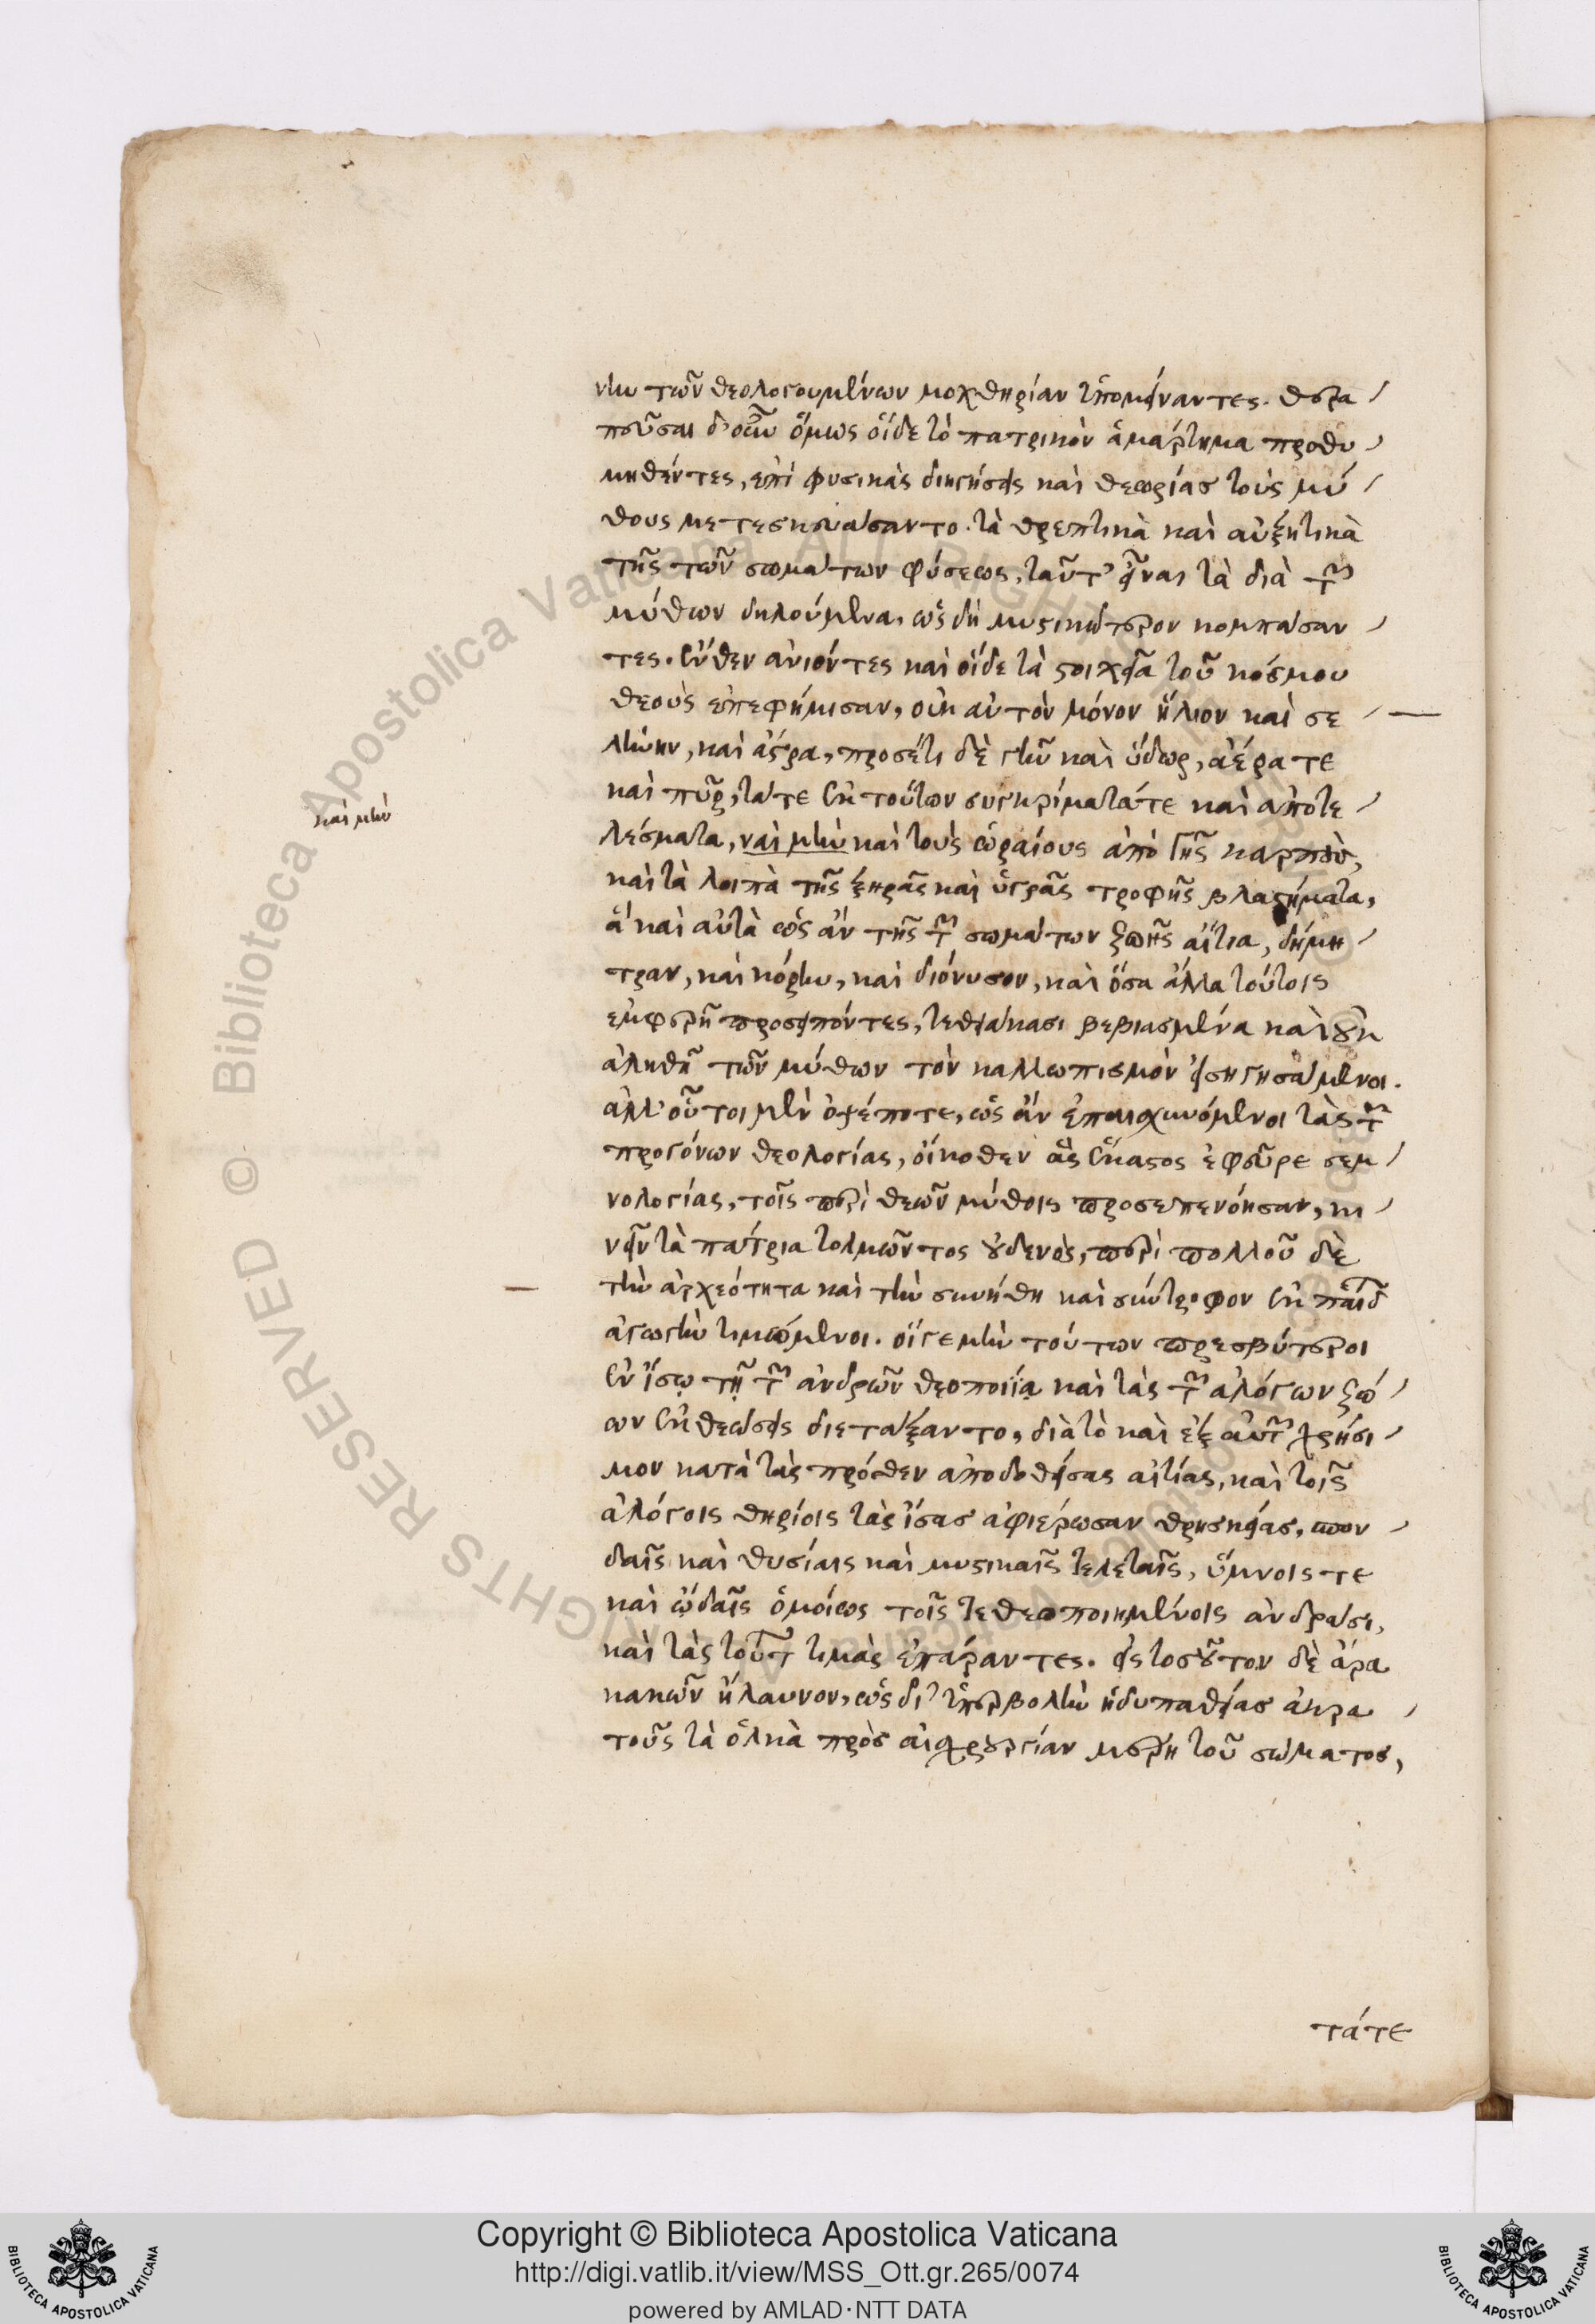 νὴν τῶν θεολογουμένων μοχθηρίαν ὑπομείναντες. θερα
πεῦσαι δ' οὖν ὅμως οἵδε τὸ πατρικὸν ἁμάρτημα προθυ
μηθέντες, ἐπὶ φυσικὰς διηγήσεις καὶ θεωρίας τοὺς μύ
θους μετεσκευάσαντο. τὰ θρεπτικὰ καὶ αὐξητικὰ
τῆς τῶν σωμάτων φύσεως, ταῦτ' εἶναι τὰ διὰ τῶν
μύθων δηλούμενα, ὡς δὴ μυστικώτερον κομπάσαν
τες. ἔνθεν ἀνιόντες καὶ οἵδε τὰ στοιχεῖα τοῦ κόσμου
θεοὺς ἐπεφήμισαν, οὐκ αὐτὸν μόνον ἥλιον καὶ σε
λήνην, καὶ ἄστρα, προσέτι δὲ γῆν καὶ ὕδωρ, ἀέρα τε
καὶ πῦρ, τά τε ἐκ τούτων συγκρίματά τε καὶ ἀποτε
λέσματα, ναὶ μὴν καὶ τοὺς ὡραίους ἀπὸ γῆς καρποὺς,
καὶ τὰ λοιπὰ τῆς ξηρᾶς καὶ ὑγρᾶς τροφῆς βλαστήματα,
ἃ καὶ αὐτὰ ὡς ἂν τῆς τῶν σωμάτων ζωῆς αἴτια, δήμη
τραν, καὶ κόρην, καὶ διόνυσον, καὶ ὅσα ἄλλα τούτοις
ἐμφερῆ προσειπόντες, τεθείκασι βεβιασμένα καὶ οὐκ
ἀληθῆ τῶν μύθων τὸν καλλωπισμὸν εἰσηγησάμενοι.
ἀλλ' οὗτοι μὲν ὀψέποτε, ὡς ἂν ἐπαισχυνόμενοι τὰς τῶν
προγόνων θεολογίας, οἴκοθεν ἃς ἕκαστος ἐφεῦρε σεμ
νολογίας, τοῖς περὶ θεῶν μύθοις προσεπενόησαν, κι
νεῖν τὰ πάτρια τολμῶντος οὐδενὸς, περὶ πολλοῦ δὲ
τὴν ἀρχεότητα καὶ τὴν συνήθη καὶ σύντροφον ἐκ παίδων
ἀγωγὴν τιμώμενοι. οἵ γε μὴν τούτων πρεσβύτεροι
ἐν ἴσῳ τῇ τῶν ἀνδρῶν θεοποιΐᾳ καὶ τὰς τῶν ἀλόγων ζώ
ων ἐκθεώσεις διετάξαντο, διὰ τὸ καὶ ἐξ αὐτῶν χρήσι
μον κατὰ τὰς πρόσθεν ἀποδοθείσας αἰτίας, καὶ τοῖς
ἀλόγοις θηρίοις τὰς ἴσας ἀφιέρωσαν θρησκείας, σπον
δαῖς καὶ θυσίαις καὶ μυστικαῖς τελεταῖς, ὕμνοις τε
καὶ ᾠδαῖς ὁμοίως τοῖς τεθεοποιημένοις ἀνδράσι,
καὶ τὰς τούτων τιμὰς ἐπάραντες. εἰς τοσοῦτον δὲ ἄρα
κακῶν ἤλαυνον, ὡς δι' ὑπερβολὴν ἡδυπαθείας ἀκρα
τοῦς τὰ ὁλκὰ πρὸς αἰσχρουργίαν μέρη τοῦ σώματος,
τάτε
καὶ μὴν
Copyright © Biblioteca Apostolica Vaticana
http://digi.vatlib.it/view/MSS_Ott.gr.265/0074
powered by AMLAD·NTT DATA
BIBLIOTECA APOSTOLICA VATICANA
BIBLIOTECA APOSTOLICA VATICANA